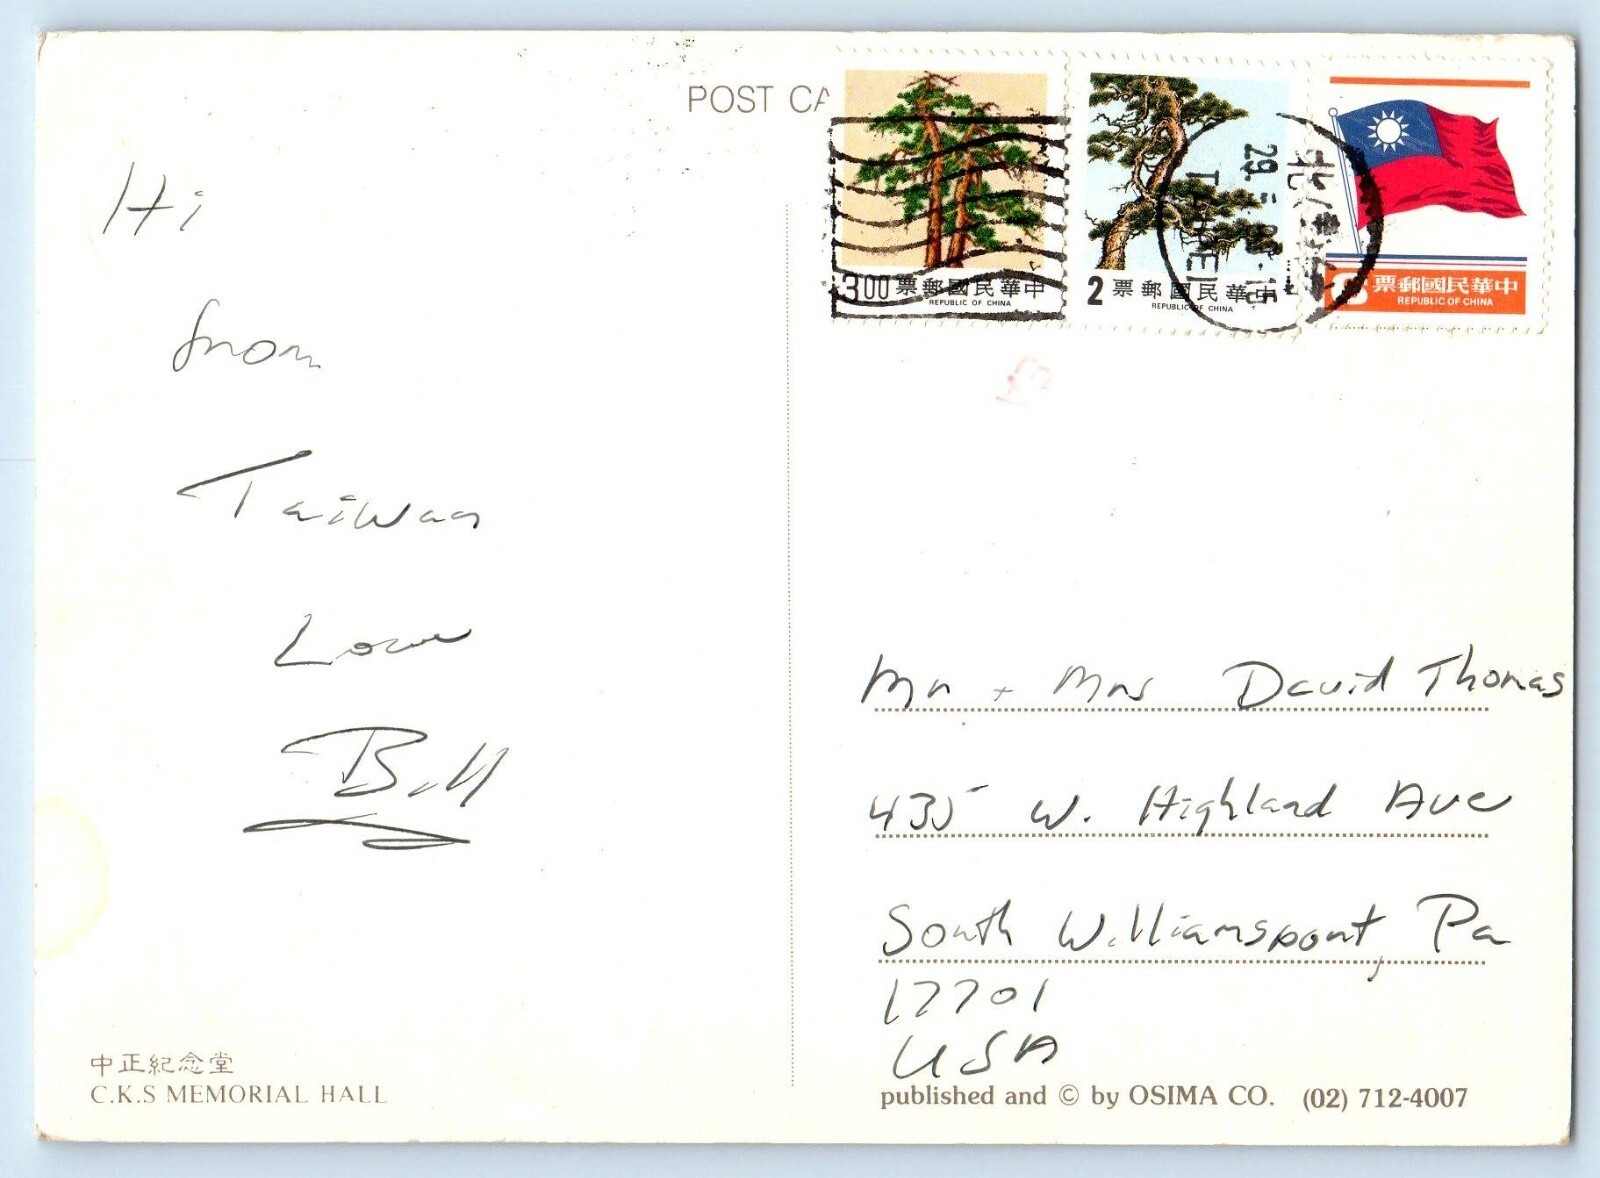 POST CA
3.00 票郵國民華中
REPUBLIC OF CHINA
2 票郵國民華中
REPUBLIC OF CHINA
票郵國民華中
REPUBLIC OF CHINA
TAIPEI
Hi
from
Taiwan
Love
Bill
Mr + Mrs David Thomas
435 W. Highland Ave
South Williamsport, Pa
17701
USA
中正紀念堂
C.K.S MEMORIAL HALL
published and © by OSIMA CO. (02) 712-4007